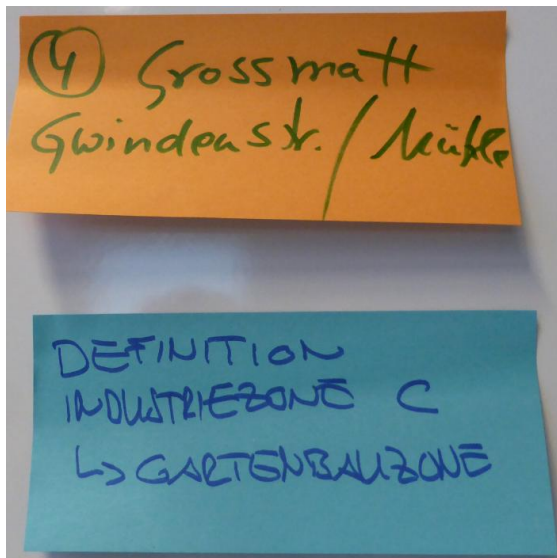 ④ Grossmatt
Gwindenstr. / Mühle
DEFINITION
INDUSTRIEZONE C
↳ GARTENBAUZONE